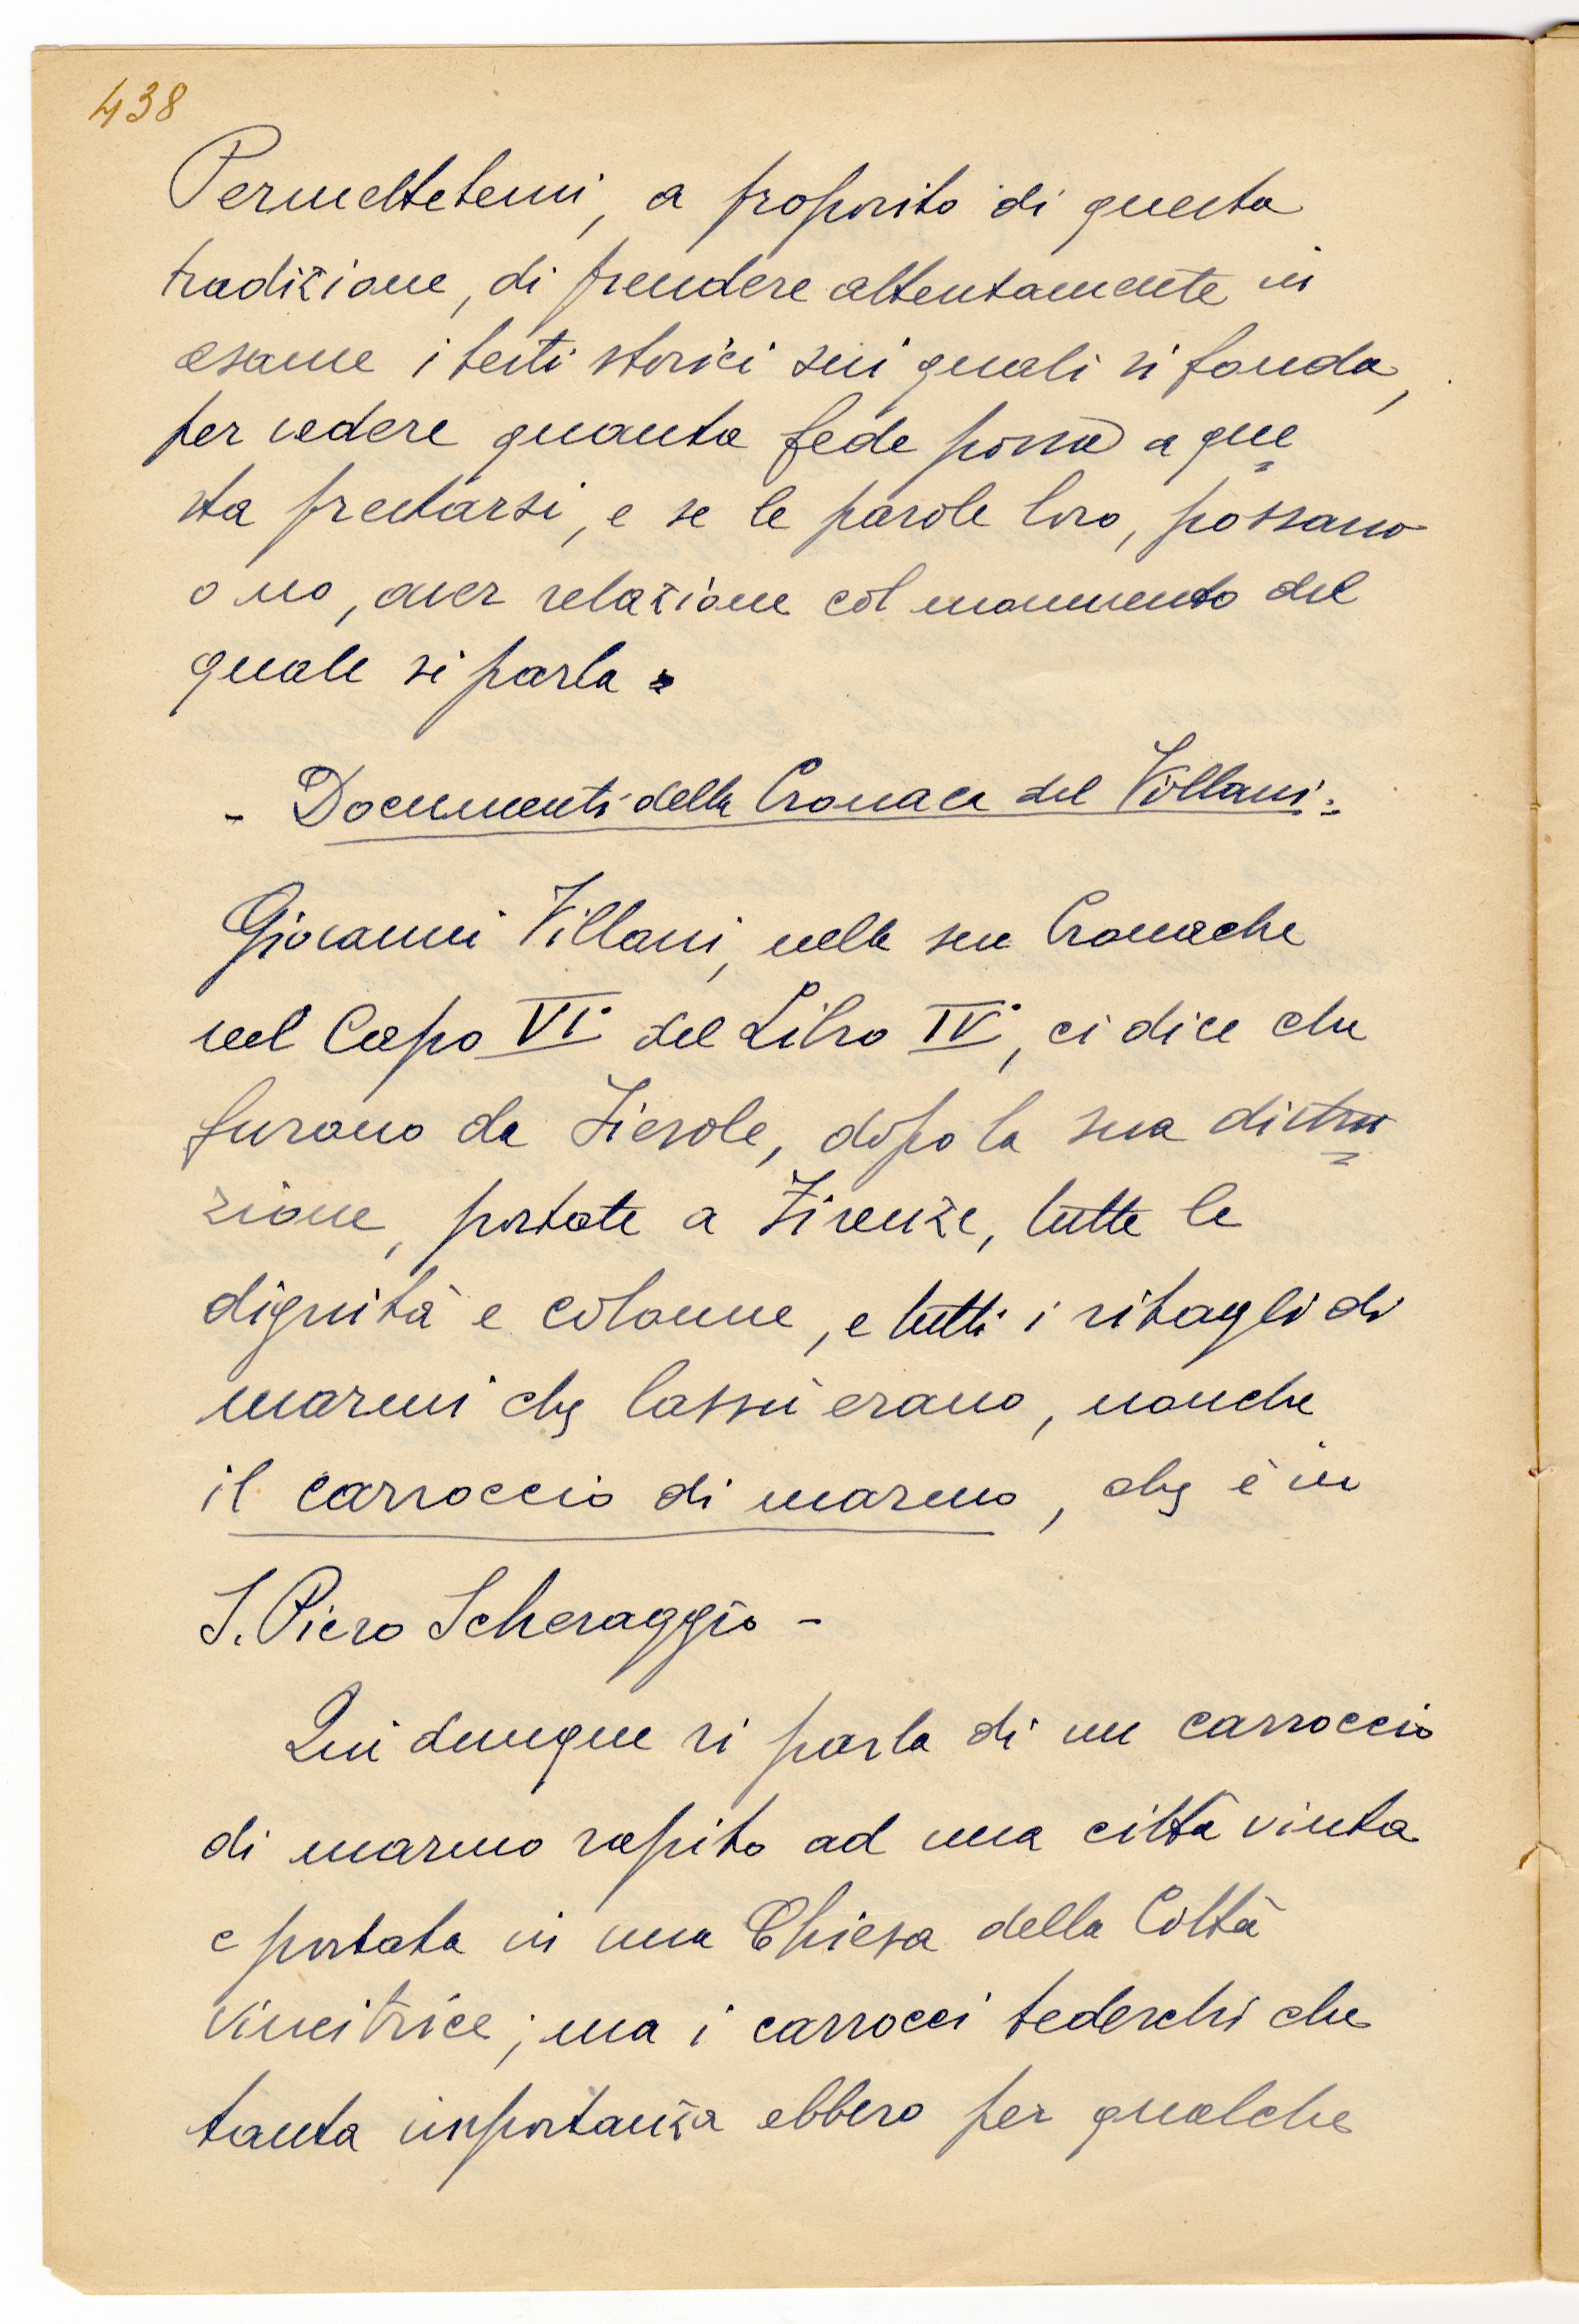 438
Permettetemi, a proposito di questa
tradizione, di prendere attentamente in
esame i testi storici sui quali si fonda,
per vedere quanta fede possa a que
sta prestarsi, e se le parole loro, possano
o no, aver relazione col monumento del
quale si parla.
- Documenti della Cronaca del Villani:
Giovanni Villani, nelle sue Cronache
nel Capo VI° del Libro IV°, ci dice che
furono da Fiesole, dopo la sua distru
zione, portate a Firenze, tutte le
dignità e colonne, e tutti i ritagli di
marmi che lassù erano, nonche
il carroccio di marmo, che è in
S. Piero Scheraggio -
Qui dunque si parla di un carroccio
di marmo rapito ad una città vinta
e portata in una Chiesa della Città
vincitrice; ma i carrocci tedeschi che
tanta importanza ebbero per qualche